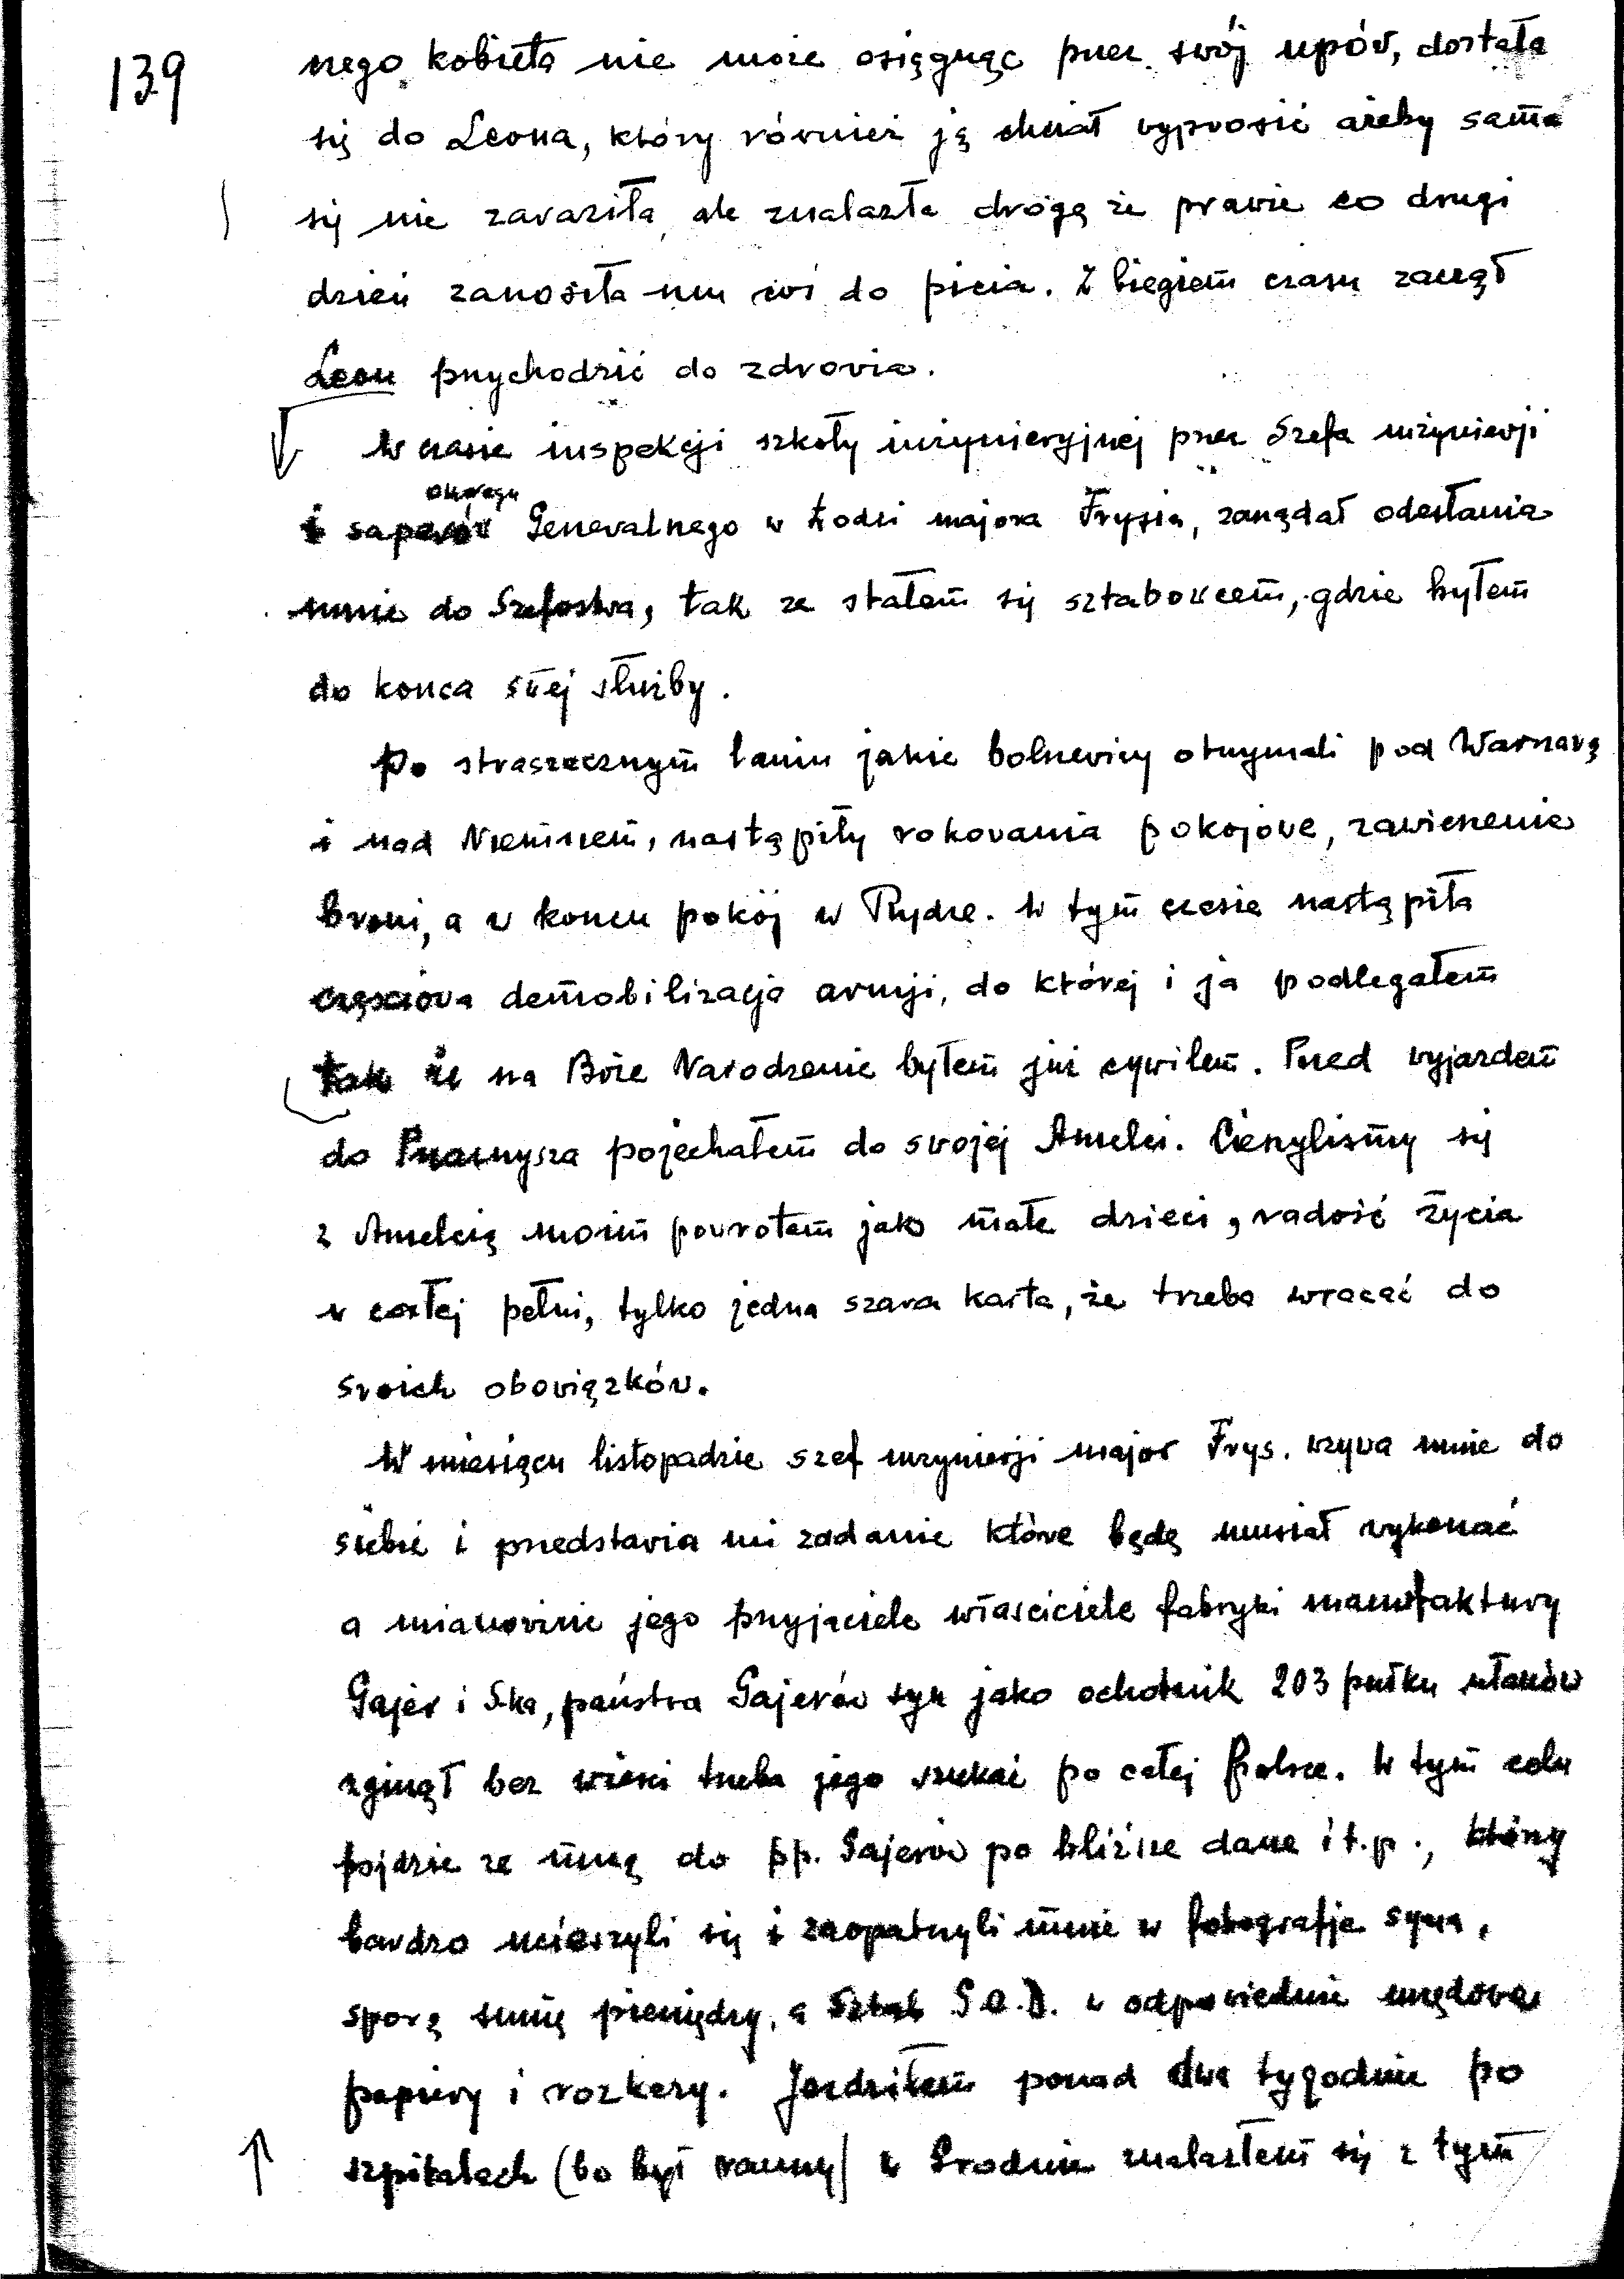 139
nego kobieta nie może osiągnąc przez swój upór, dostała
się do Leona, który również ją chciał wyprosić ażeby sama
się nie zaraziła, ale znalazła drogę że prawie co drugi
dzień zanosiła mu coś do picia. Z biegiem czasu zaczął
Leon przychodzić do zdrowia.
W czasie inspekcji szkoły inżynieryjnej przez Szefa inżynierji
Okręgu
i saperów Generalnego w Łodzi majora Frysia, zarządał odesłania
mnie do Szefostwa, tak ze stałem się sztabowcem, gdzie byłem
do konca swej służby.
Po straszecznym laniu jakie bolszewicy otrzymali pod Warszawą
i nad Niemnem, nastąpiły rokowania pokojowe, zawieszenie
broni, a w koncu pokój w Rydze. W tym czasie nastąpiła
częsciowa demobilizacja armji, do której i ja podlegałem
tak że na Boże Narodzenie byłem już cywilem. Przed wyjazdem
do Przasnysza pojechałem do swojej Amelci. Cieszylismy się
z Amelcią moim powrotem jako małe dzieci, radość życia
w całej pełni, tylko jedna szara karta, że trzeba wracać do
swoich obowiązków.
W miesiącu listopadzie szef inżynierji major Frys. wzywa mnie do
siebie i przedstawia mi zadanie które będę musiał wykonać
a mianowicie jego przyjaciele właściciele fabryki manufaktury
Gajer i Ska, państwa Gajerów syn jako ochotnik 203 pułku ułanów
zginął bez wieści trzeba jego szukać po całej Polsce. W tym celu
pojdzie ze mną do pp. Gajerów po bliższe dane i t.p., którzy
bardzo ucieszyli się i zaopatrzyli mnie w fotografje syna,
sporą sumę pieniędzy, a Sztab G.O.D. w odpowiednie urzędowe
papiery i rozkazy. Jezdziłem ponad dwa tygodnie po
szpitalach (bo był ranny) w Grodnie znalazłem się z tym